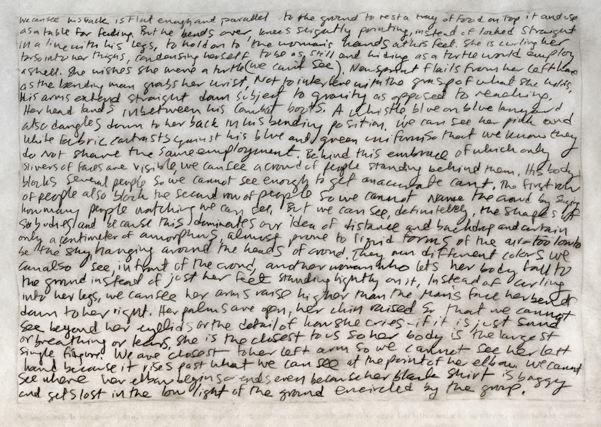 We can see his back is flat enough and parallel to the ground to rest a tray of food on top it and use
as a table for feeding. But he bends over, knees slightly pointing, instead of locked straight
in a line with his legs, to hold on to the woman's hands at his feet. She is curling her
torso into her thighs, condensing herself to be as still and hiding as a turtle would employ
a shell. She wishes she were a turtle (we can't see). Newsprint flails from her left hand
as the bending man grabs her wrist, Not to interfere with the grasp of what she holds,
His arms extend straight down subject to gravity as opposed to reaching.
Her head lands inbetween his combat boots. A whistle blue on blue lanyard
also dangles down to her back in his bending position. We can see her pink and
white fabric contrasts against his blue and green uniform so that we know they
do not share the same employment. Behind this embrace of which only
slivers of faces are visible, we can see a crowd of people standing behind them. His body
blocks several people so we cannot see enough to get an accurate count. The first row
of people also block the second row of people so we cannot name the crowd by saying
how many people watching we can see, But we can see, definitely, the shapes of
30 bodies and because this dominates our idea of distance and backdrop and curtain
only a centimeter of amorphous almost prone to liquid forms of the air too low to
be the sky, hanging around the heads of crowd. They own different colors we
can also see, in front of the crowd, another woman who lets her body fall to
the ground instead of just her feet standing lightly on it, Instead of curling
into her legs, we can see her arms raise higher than the mans face her bends
down to her right. Her palms are open, her chin raised so that we cannot
see beyond her eyelids or the detail of how she cries - if it is just sound
or breathing or tears. She is the closest to us so her body is the largest
single figure. We are closest to her left arm so we cannot see her left
hand because it rises past what we can see at the point of her elbow. We cannot
see where her elbow begins or ends even because her black shirt is baggy
and gets lost in the low light of the ground encircled by the group.